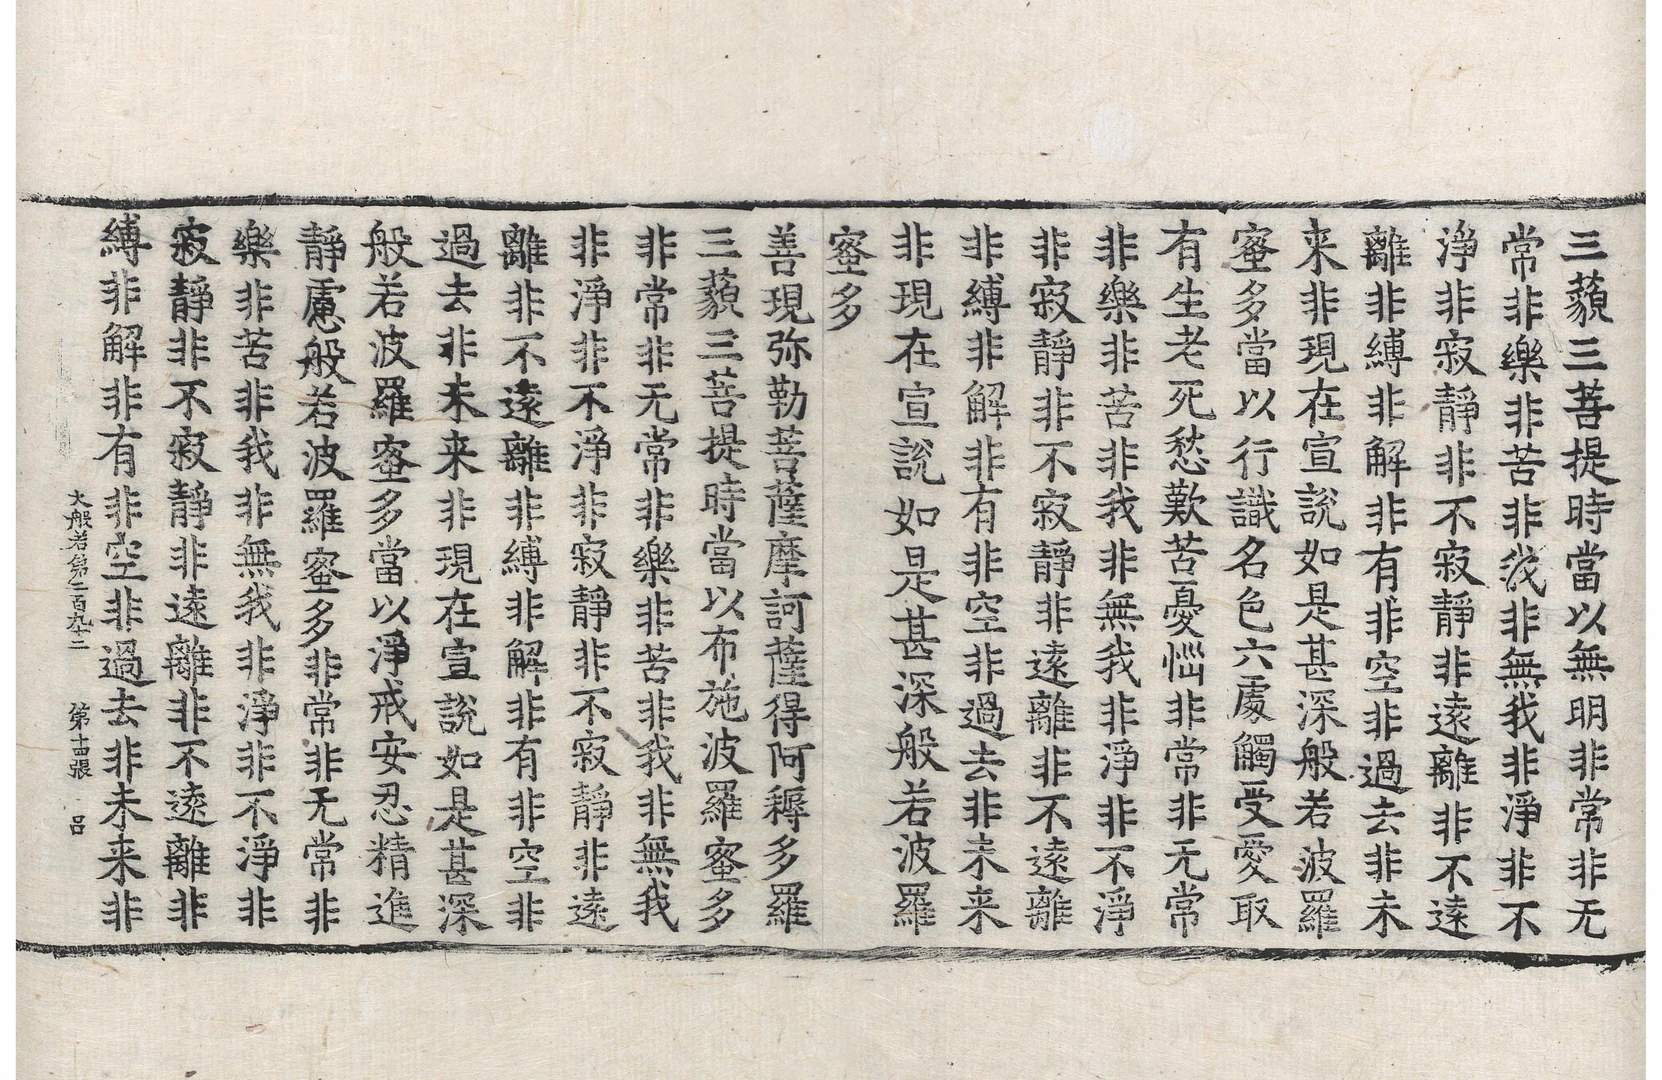 三藐三菩提時當以無明非常非无
常非樂非苦非我非無我非淨非不
淨非寂靜非不寂靜非遠離非不遠
離非縛非解非有非空非過去非未
来非現在宣說如是甚深般若波羅
蜜多當以行識名色六處觸受愛取
有生老死愁歎苦憂惱非常非无常
非樂非苦非我非無我非淨非不淨
非寂靜非不寂靜非遠離非不遠離
非縛非解非有非空非過去非未来
非現在宣說如是甚深般若波羅
蜜多
善現弥勒菩薩摩訶薩得阿耨多羅
三藐三菩提時當以布施波羅蜜多
非常非无常非樂非苦非我非無我
非淨非不淨非寂靜非不寂靜非遠
離非不遠離非縛非解非有非空非
過去非未来非現在宣說如是甚深
般若波羅蜜多當以淨戒安忍精進
靜慮般若波羅蜜多非常非无常非
樂非苦非我非無我非淨非不淨非
寂靜非不寂靜非遠離非不遠離非
縛非解非有非空非過去非未来非
大般若第二百九十二 第十四張 呂